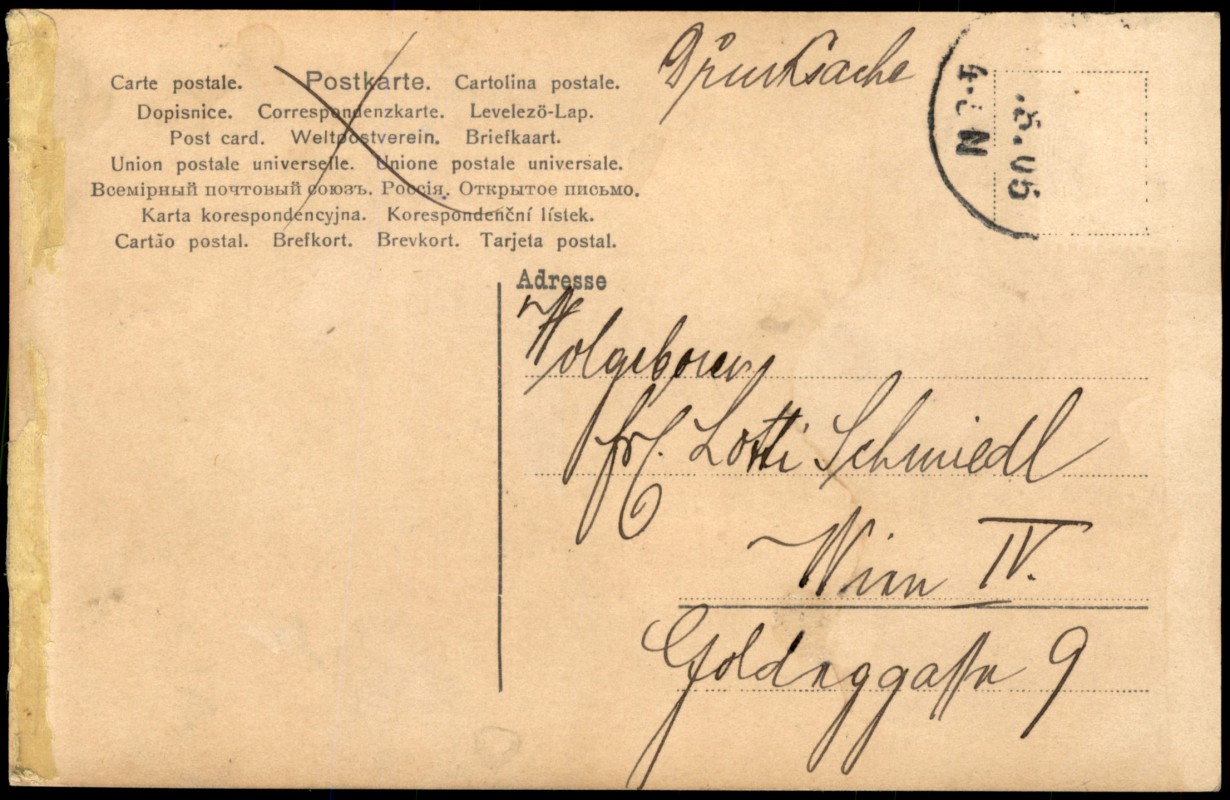 Drucksache
Carte postale. Postkarte. Cartolina postale.
Dopisnice. Correspondenzkarte. Levelezö-Lap.
Post card. Weltpostverein. Briefkaart.
Union postale universelle. Unione postale universale.
Всемірный почтовый союзъ. Россія. Открытое письмо.
Karta korespondencyjna. Korespondenční lístek.
Cartão postal. Brefkort. Brevkort. Tarjeta postal.
Adresse
Wolgeboren
Frl. Lotti Schmiedl
Wien IV.
Goldeggasse 9